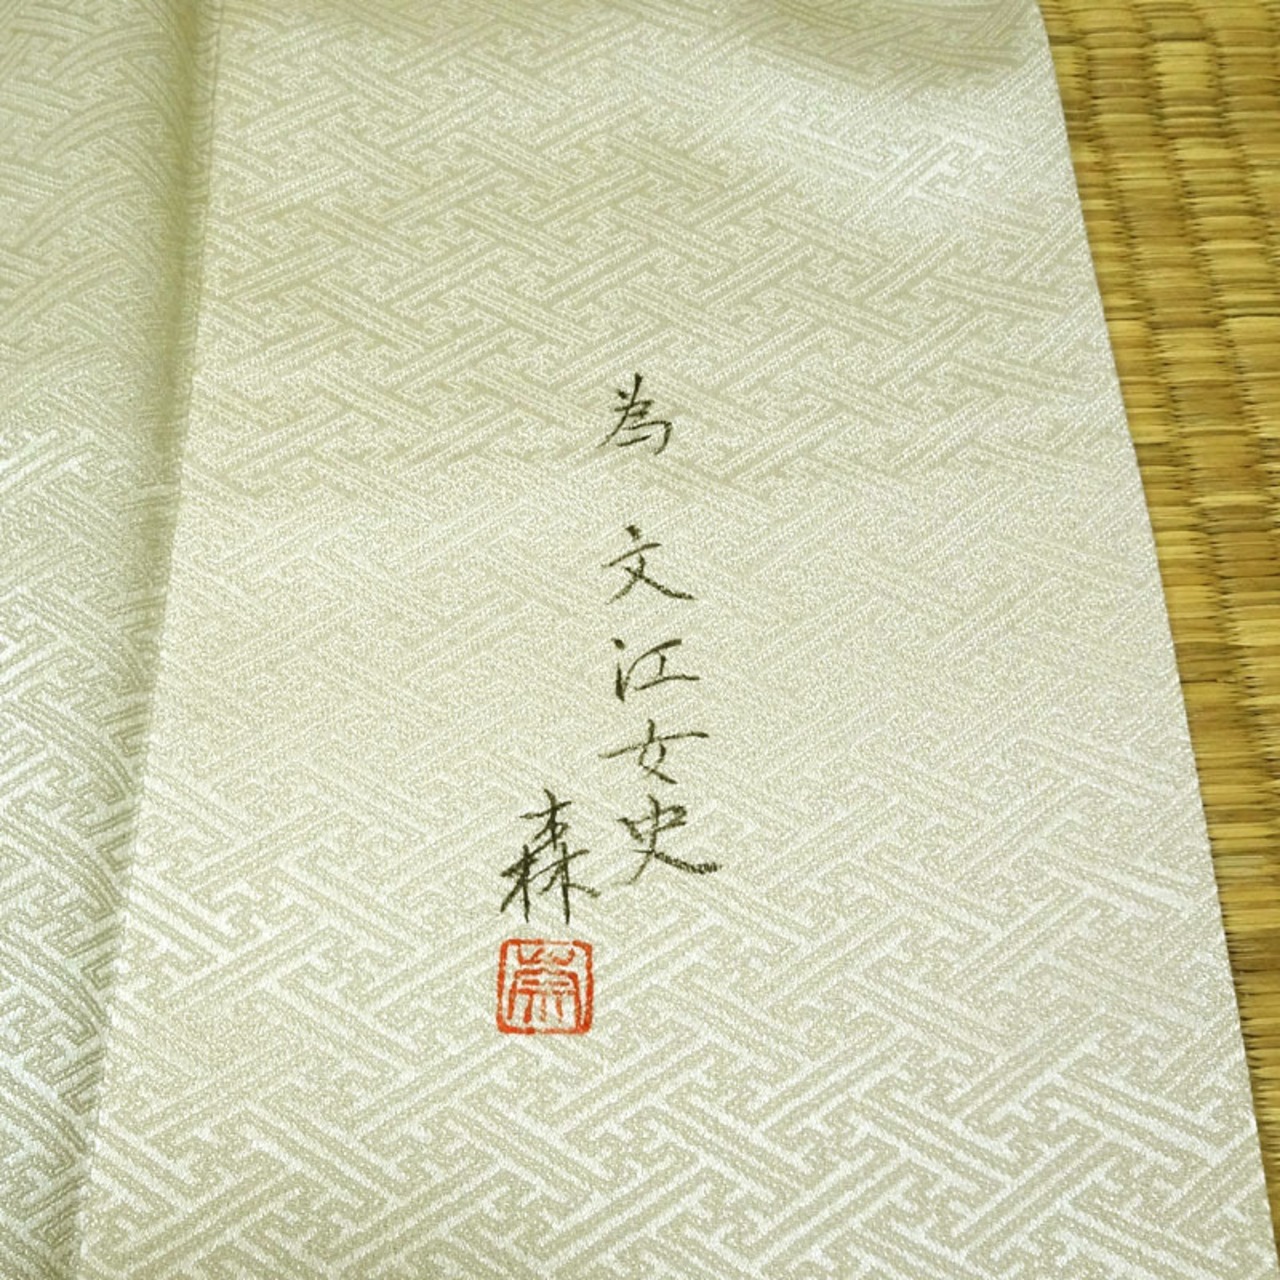 為 文江女史
森